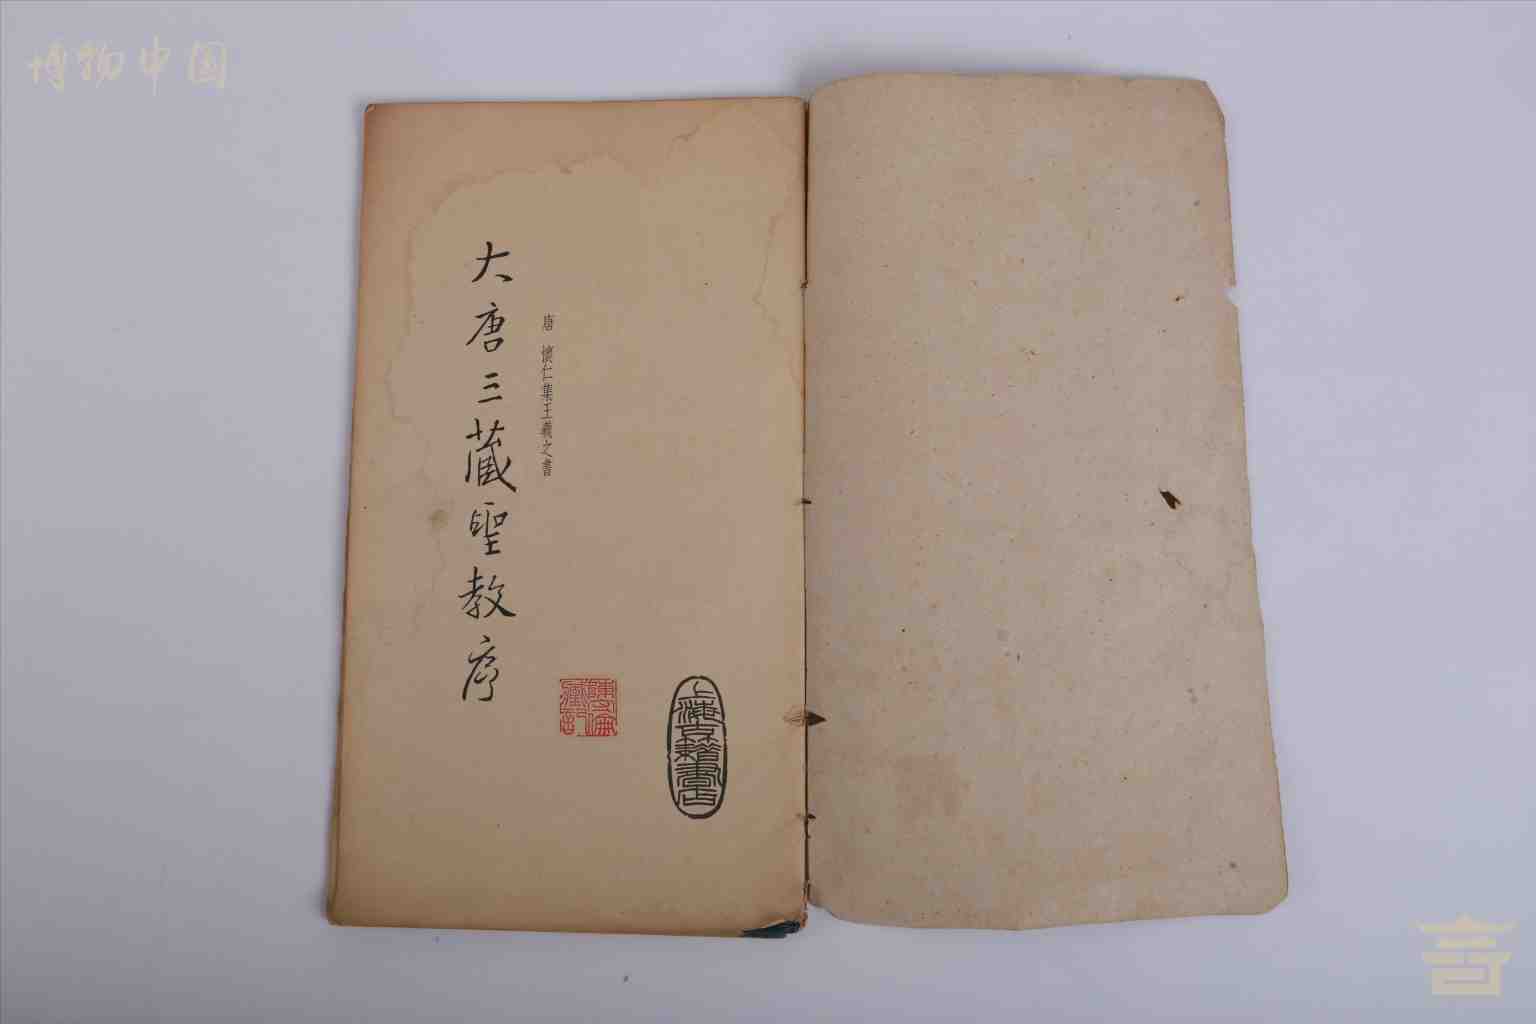 博物中国
唐 懷仁集王羲之書
大唐三藏聖教序
上海古籍書店